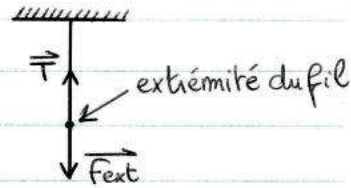 T
extrémité du fil
Fext